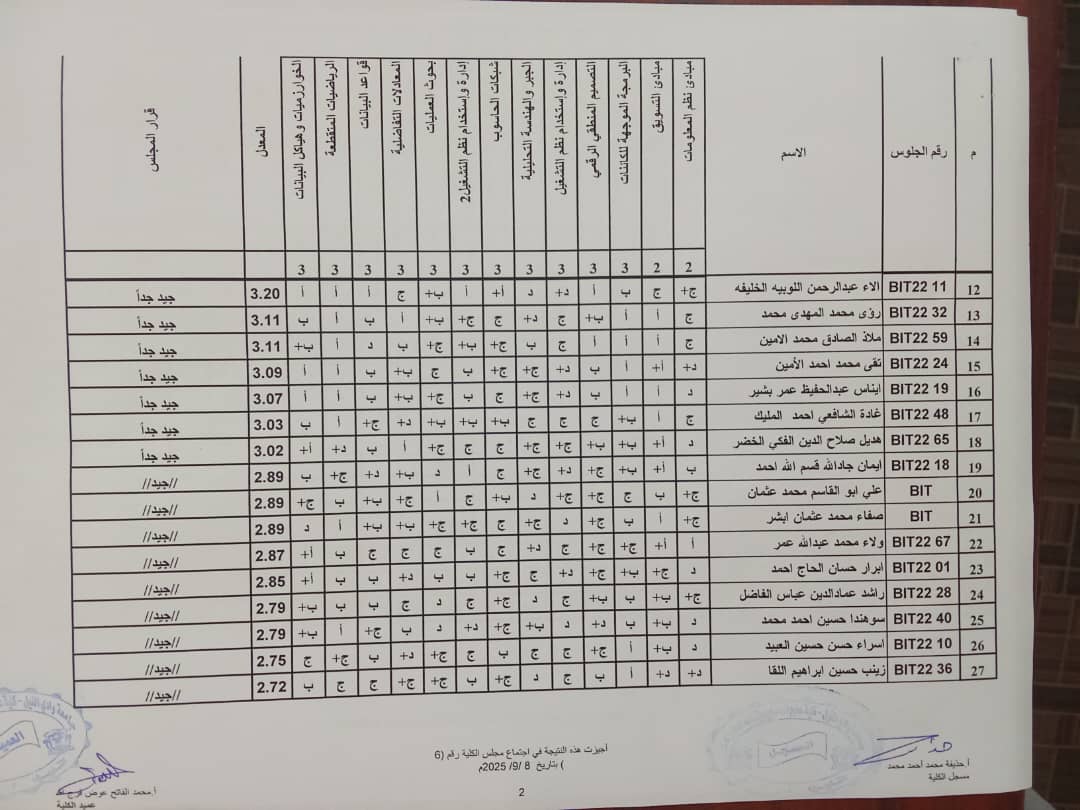 م رقم الجلوس الاسم مبادئ نظم المعلومات مبادئ التسويق البرمجة الموجهة للكائنات التصميم المنطقي الرقمي إدارة وإستخدام نظم التشغيل الجبر والهندسة التحليلية شبكات الحاسوب إدارة وإستخدام نظم التشغيل2 بحوث العمليات المعادلات التفاضلية قواعد البيانات الرياضيات المتقطعة الخوارزميات وهياكل البيانات المعدل قرار المجلس
2 2 3 3 3 3 3 3 3 3 3 3 3
12 BIT22 11 الاء عبدالرحمن اللوبيه الخليفه ج+ ج ب أ د+ د أ+ أ ب+ ج أ أ أ 3.20 جيد جداً
13 BIT22 32 رؤى محمد المهدى محمد ج أ أ ب+ ج د+ ج ج+ ب+ أ ب أ ب 3.11 جيد جداً
14 BIT22 59 ملاذ الصادق محمد الامين ج أ أ أ ج ب ج+ ب+ ج+ ب د أ ب+ 3.11 جيد جداً
15 BIT22 24 تقى محمد احمد الأمين د+ أ+ أ ب د+ ج+ ج+ ب ج ب+ ب أ أ 3.09 جيد جداً
16 BIT22 19 ايناس عبدالحفيظ عمر بشير د أ أ ب د+ ج+ ج ب ج+ ب+ ب أ أ 3.07 جيد جداً
17 BIT22 48 غادة الشافعي احمد المليك ج أ ب+ ج ج ج ب+ ب+ ب+ د+ ج+ أ ب 3.03 جيد جداً
18 BIT22 65 هديل صلاح الدين الفكي الخضر د أ+ ب+ ب+ ج+ ج+ ج ج ج+ أ ب د+ أ+ 3.02 جيد جداً
19 BIT22 18 ايمان جادالله قسم الله احمد ب أ+ ب+ ج+ د+ ج+ ج أ د ب+ د+ ج+ ب 2.89 //جيد//
20 BIT علي ابو القاسم محمد عثمان ج+ ب ج ج+ ج+ د ب+ ج أ ج+ ب+ ب ج+ 2.89 //جيد//
21 BIT صفاء محمد عثمان ابشر ج+ أ ب ج+ د ج ج+ ج+ ج+ ب+ ب+ أ د 2.89 //جيد//
22 BIT22 67 ولاء محمد عبدالله عمر أ أ+ ج+ ج+ ج د+ ج ب ج ج ج ب أ+ 2.87 //جيد//
23 BIT22 01 ابرار حسان الحاج احمد د ج+ ب+ ج+ د+ ج ج+ ب ب د+ ب ب أ+ 2.85 //جيد//
24 BIT22 28 راشد عمادالدين عباس الفاضل ج+ ب+ ب+ ب+ ج د ج+ ج د ج ب ب ب+ 2.79 //جيد//
25 BIT22 40 سوهندا حسين احمد محمد د ب+ ب د+ د ب+ ج+ د+ د ب ج+ أ ب+ 2.79 //جيد//
26 BIT22 10 اسراء حسن حسين العبيد د ب+ أ ج+ ج ج ب ج ج د+ ب ج+ ج 2.75 //جيد//
27 BIT22 36 زينب حسين ابراهيم اللقا د+ د+ أ ب ج د ج+ ب ج+ ج+ ج ج ب 2.72 //جيد//
أجيزت هذه النتيجة في اجتماع مجلس الكلية رقم (6
) بتاريخ 8 /9/ 2025م
أ.حذيفة محمد أحمد محمد
مسجل الكلية
أ.محمد الفاتح عوض فرج
عميد الكلية
2